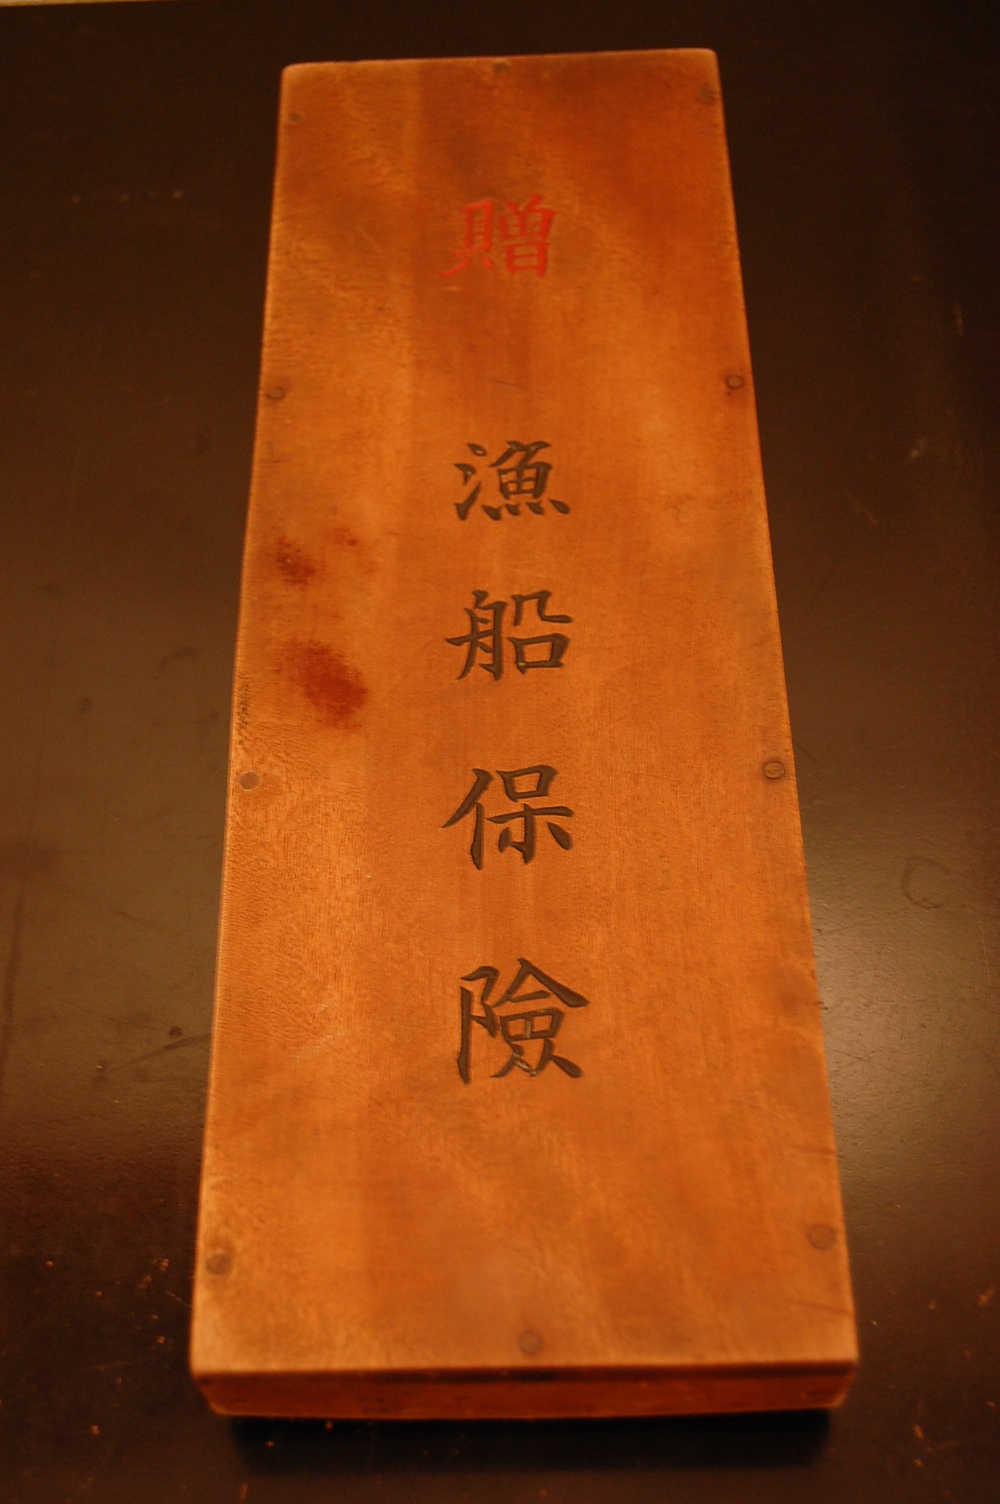 贈
漁船保險